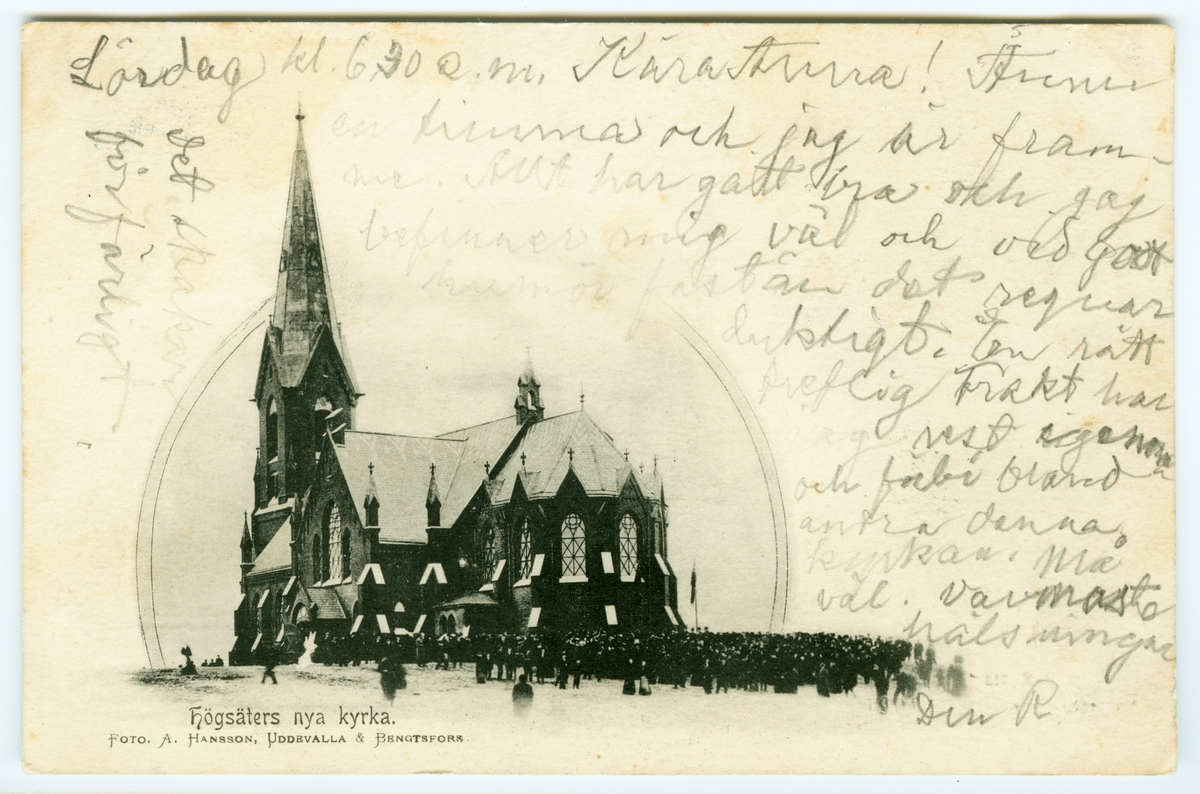 Lördag kl. 6,30 e.m. Kära Anna! Ännu
en timma och jag är fram-
me. Allt har gått bra och jag
befinner mig väl och vid gott
humör fastän det regnar
duktigt. En rätt
treflig trakt har
jag rest igenom
och förbi bland
andra denna
kyrkan. Må
väl. Varmaste
hälsningar
Din R
Det skakar
förfärligt.
Högsäters nya kyrka.
FOTO. A. HANSSON, UDDEVALLA & BENGTSFORS.